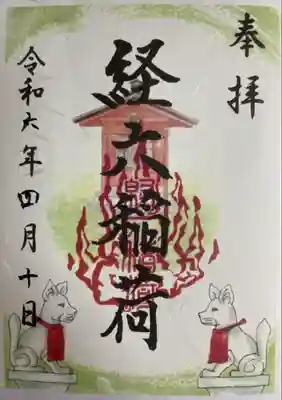 奉拝
経六稲荷
令和六年四月十日